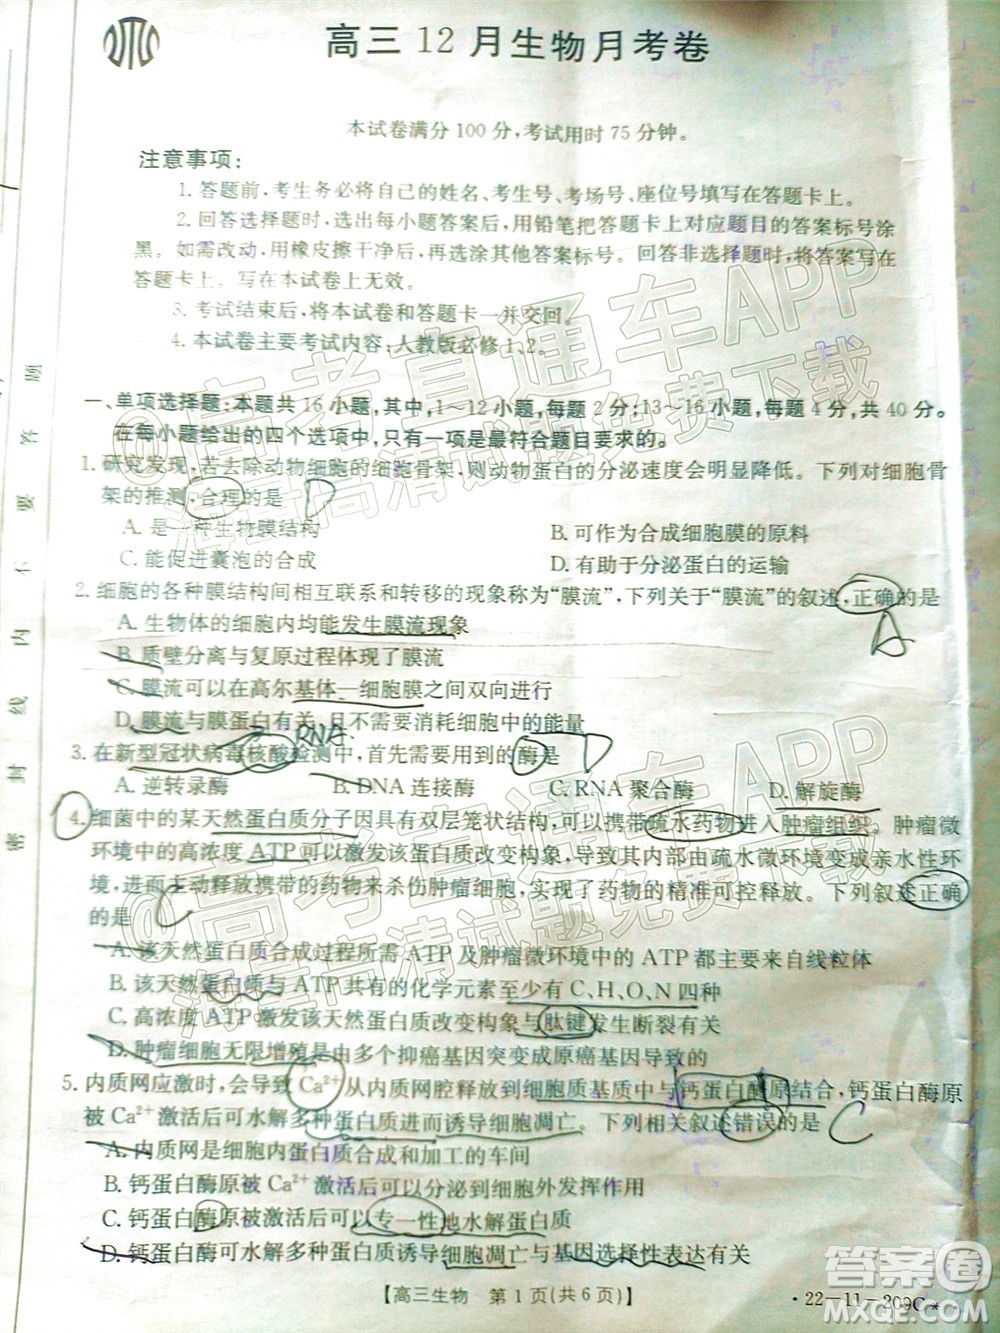 高三12月生物月考卷
本试卷满分100分,考试用时75分钟。
注意事项:
1. 答题前,考生务必将自己的姓名、考生号、考场号、座位号填写在答题卡上。
2. 回答选择题时,选出每小题答案后,用铅笔把答题卡上对应题目的答案标号涂
黑。如需改动,用橡皮擦干净后,再选涂其他答案标号。回答非选择题时,将答案写在
答题卡上。写在本试卷上无效。
3. 考试结束后,将本试卷和答题卡一并交回。
4. 本试卷主要考试内容:人教版必修1、2。
一、单项选择题:本题共16小题,其中,1~12小题,每题2分;13~16小题,每题4分,共40分。
在每小题给出的四个选项中,只有一项是最符合题意的。
1. 研究发现,若去除动物细胞的细胞骨架,则动物蛋白的分泌速度会明显降低。下列对细胞骨
架的推测,合理的是 D
A. 是一种生物膜结构 B. 可作为合成细胞膜的原料
C. 能促进囊泡的合成 D. 有助于分泌蛋白的运输
2. 细胞的各种膜结构间相互联系和转移的现象称为“膜流”,下列关于“膜流”的叙述,正确的是
A
A. 生物体的细胞内均能发生膜流现象
B. 质壁分离与复原过程体现了膜流
C. 膜流可以在高尔基体—细胞膜之间双向进行
D. 膜流与膜蛋白有关,且不需要消耗细胞中的能量
RNA
3. 在新型冠状病毒核酸检测中,首先需要用到的酶是 D
A. 逆转录酶 B. DNA 连接酶 C. RNA 聚合酶 D. 解旋酶
4. 细菌中的某天然蛋白质分子因具有双层笼状结构,可以携带疏水药物进入肿瘤组织。肿瘤微
环境中的高浓度 ATP 可以激发该蛋白质改变构象,导致其内部由疏水微环境变成亲水性环
境,进而主动释放携带的药物来杀伤肿瘤细胞,实现了药物的精准可控释放。下列叙述正确
的是 C
A. 该天然蛋白质合成过程所需 ATP 及肿瘤微环境中的 ATP 都主要来自线粒体
B. 该天然蛋白质与 ATP 共有的化学元素至少有 C、H、O、N 四种
C. 高浓度 ATP 激发该天然蛋白质改变构象与肽键发生断裂有关
D. 肿瘤细胞无限增殖是由于抑癌基因突变成原癌基因导致的
5. 内质网应激时,会导致 Ca²⁺ 从内质网腔释放到细胞质基质中与钙蛋白酶原结合,钙蛋白酶原
被 Ca²⁺ 激活后可水解多种蛋白质进而诱导细胞凋亡。下列相关叙述错误的是 C
A. 内质网是细胞内蛋白质合成和加工的车间
B. 钙蛋白酶原被 Ca²⁺ 激活后可以通过分泌到胞外发挥作用
C. 钙蛋白酶原被激活后可以专一性地水解蛋白质
D. 钙蛋白酶可水解多种蛋白质诱导细胞凋亡与基因选择性表达有关
【高三生物 第 1 页(共 6 页)】
·22-11-209C·
密封线内不要答题
@高考直通车APP
海量高清试题免费下载
@高考直通车APP
海量高清试题免费下载
答案圈
MXQE.COM